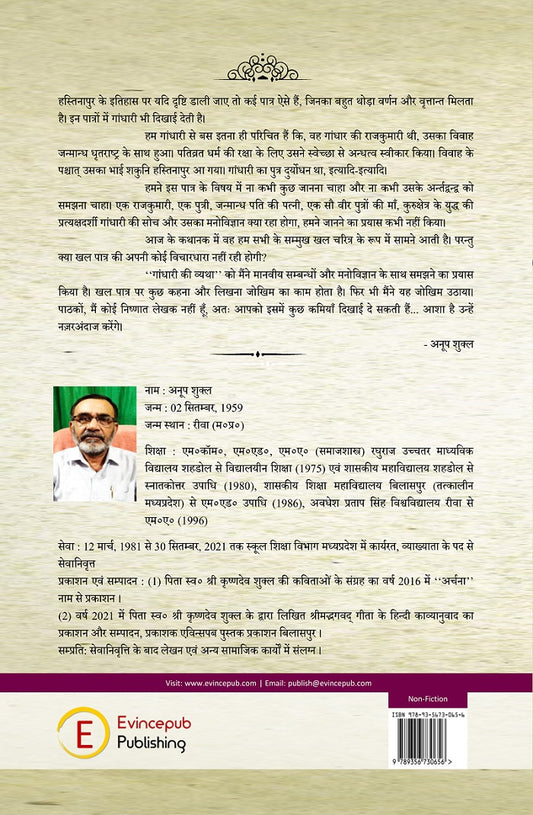 हस्तिनापुर के इतिहास पर यदि दृष्टि डाली जाए तो कई पात्र ऐसे हैं, जिनका बहुत थोड़ा वर्णन और वृत्तान्त मिलता
है। इन पात्रों में गांधारी भी दिखाई देती है।
हम गांधारी से बस इतना ही परिचित हैं कि, वह गंधार की राजकुमारी थी, उसका विवाह
जन्मान्ध धृतराष्ट्र के साथ हुआ। पतिव्रत धर्म की रक्षा के लिए उसने स्वेच्छा से अन्धत्व स्वीकार किया। विवाह के
पश्चात् उसका भाई शकुनि हस्तिनापुर आ गया। गांधारी का पुत्र दुर्योधन था, इत्यादि-इत्यादि।
हमने इस पात्र के विषय में ना कभी कुछ जानना चाहा और ना कभी उसके अर्न्तद्वन्द्व को
समझना चाहा। एक राजकुमारी, एक पुत्री, जन्मान्ध पति की पत्नी, एक सौ वीर पुत्रों की माँ, कुरुक्षेत्र के युद्ध की
प्रत्यक्षदर्शी गांधारी की सोच और उसका मनोविज्ञान क्या रहा होगा, हमने जानने का प्रयास कभी नहीं किया।
आज के कथानक में वह हम सभी के सम्मुख खल चरित्र के रूप में सामने आती है। परन्तु
क्या खल पात्र की अपनी कोई विचारधारा नहीं रही होगी?
‘‘गांधारी की व्यथा’’ को मैंने मानवीय सम्बन्धों और मनोविज्ञान के साथ समझने का प्रयास
किया है। खल पात्र पर कुछ कहना और लिखना जोखिम का काम होता है। फिर भी मैंने यह जोखिम उठाया।
पाठकों, मैं कोई निष्णात लेखक नहीं हूँ, अतः आपको इसमें कुछ कमियाँ दिखाई दे सकती हैं... आशा है उन्हें
नज़रअंदाज करेंगे।
- अनूप शुक्ल
नाम : अनूप शुक्ल
जन्म : 02 सितम्बर, 1959
जन्म स्थान : रीवा (म०प्र०)
शिक्षा : एम०कॉम०, एम०एड०, एम०ए० (समाजशास्त्र) रघुराज उच्चतर माध्यविक
विद्यालय शहडोल से विद्यालयीन शिक्षा (1975) एवं शासकीय महाविद्यालय शहडोल से
स्नातकोत्तर उपाधि (1980), शासकीय शिक्षा महाविद्यालय बिलासपुर (तत्कालीन
मध्यप्रदेश) से एम०एड० उपाधि (1986), अवधेश प्रताप सिंह विश्वविद्यालय रीवा से
एम०ए० (1996)
सेवा : 12 मार्च, 1981 से 30 सितम्बर, 2021 तक स्कूल शिक्षा विभाग मध्यप्रदेश में कार्यरत, व्याख्याता के पद से
सेवानिवृत्त
प्रकाशन एवं सम्पादन : (1) पिता स्व० श्री कृष्णदेव शुक्ल की कविताओं के संग्रह का वर्ष 2016 में ‘‘अर्चना’’
नाम से प्रकाशन ।
(2) वर्ष 2021 में पिता स्व० श्री कृष्णदेव शुक्ल के द्वारा लिखित श्रीमद्भगवद् गीता के हिन्दी काव्यानुवाद का
प्रकाशन और सम्पादन, प्रकाशक एविन्सपब पुस्तक प्रकाशन बिलासपुर ।
सम्प्रति: सेवानिवृत्ति के बाद लेखन एवं अन्य सामाजिक कार्यों में संलग्न ।
Visit: www.evincepub.com | Email: publish@evincepub.com
Non-Fiction
E Evincepub
Publishing
ISBN 978-93-5673-065-6
9 789356 730656 >